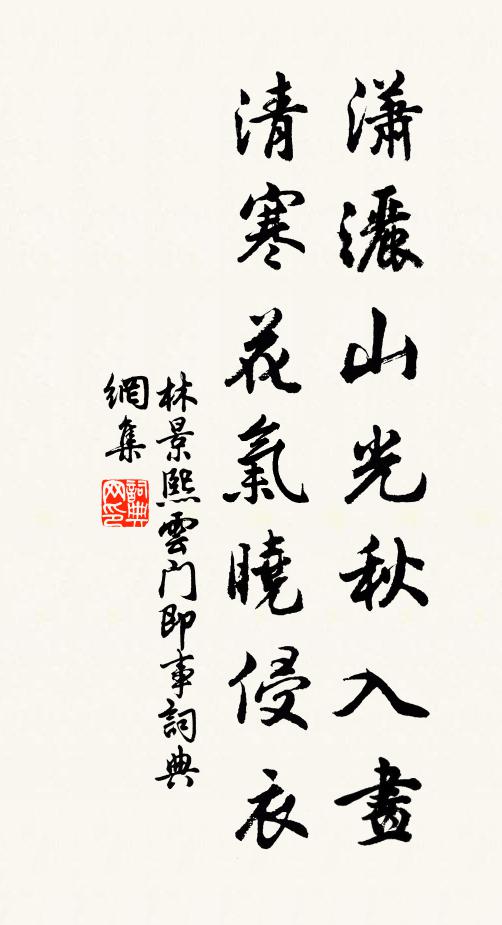 瀟灑山光秋入畫
清寒花氣曉侵衣
林景熙雲门即事詞典
網集
詞典
网印